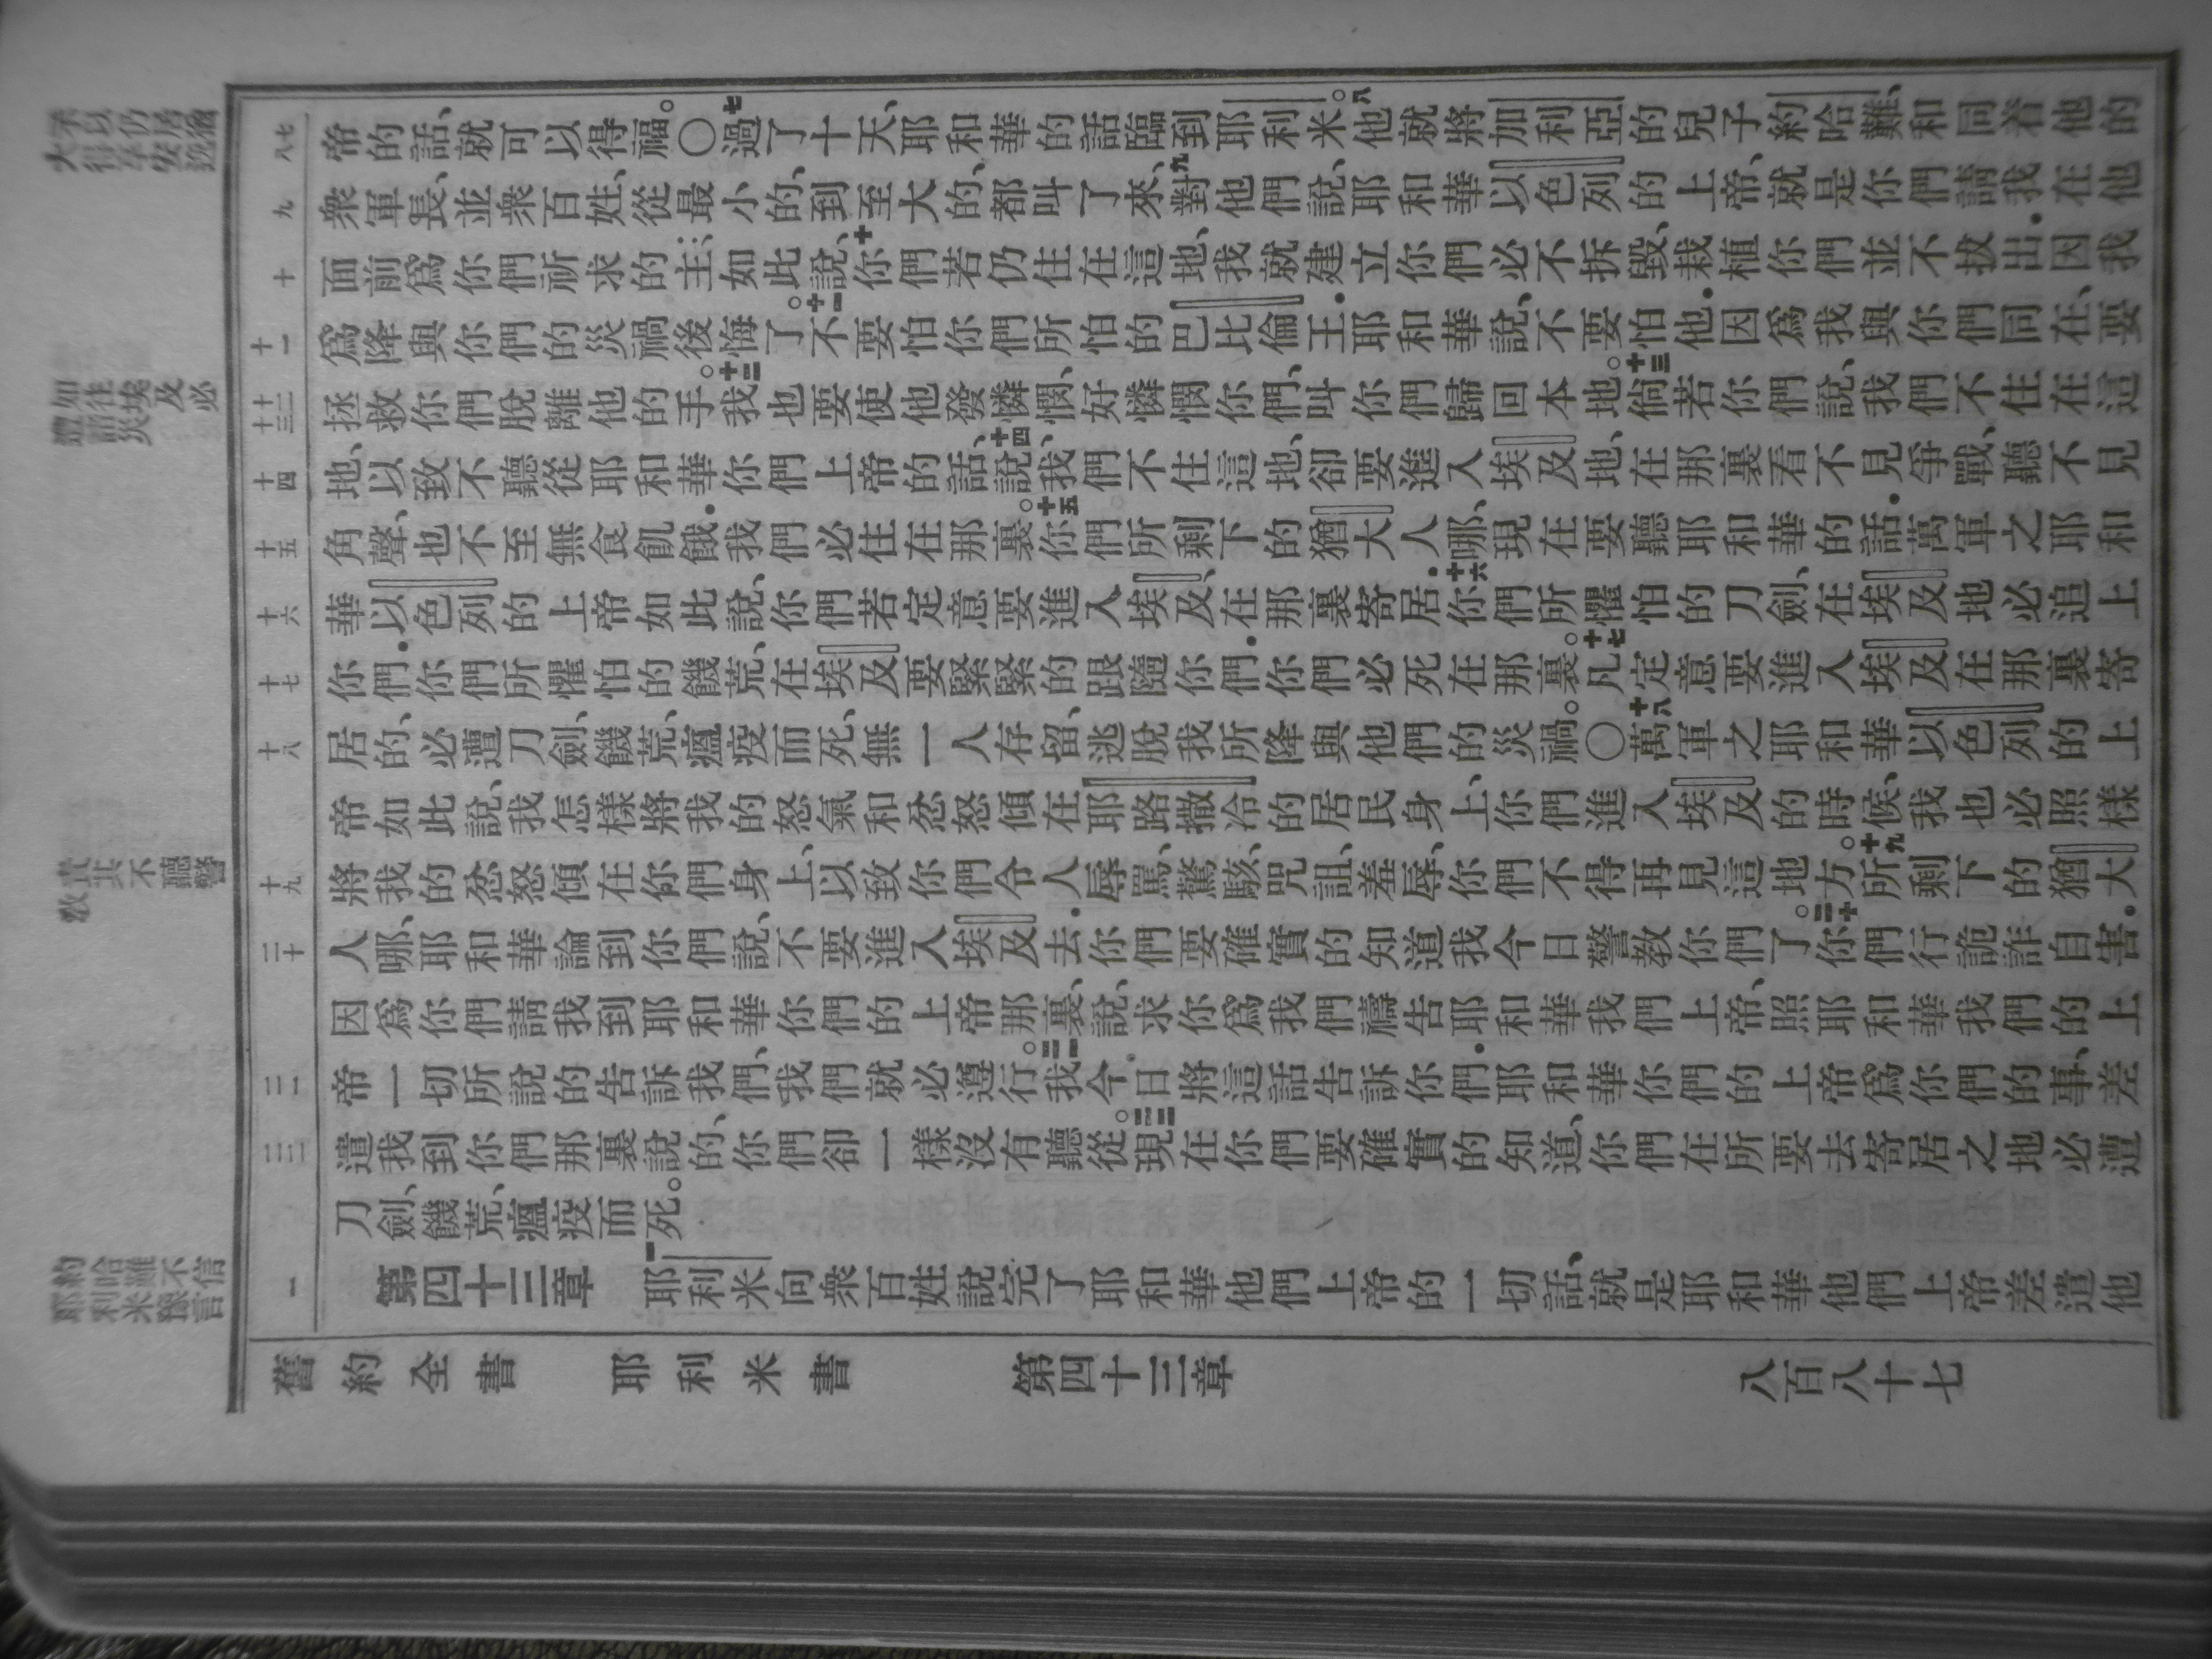 如往埃及必
遭諸災
責其不聽警
教
約哈難不信
耶利米豫言
七
八
九
十
十一
十二
十三
十四
十五
十六
十七
十八
十九
二十
二一
二二
一
帝的話、就可以得福。〇七過了十天、耶和華的話臨到耶利米。八他就將加利亞的兒子約哈難、和同着他的
衆軍長、並衆百姓、從最小的、到至大的、都叫了來、九對他們說、耶和華以色列的上帝、就是你們請我在他
面前爲你們祈求的主、如此說、十你們若仍住在這地、我就建立你們必不拆毀、栽植你們並不拔出．因我
爲降與你們的災禍後悔了。十一不要怕你們所怕的巴比倫王．耶和華說、不要怕他．因爲我與你們同在、要
拯救你們脫離他的手。十二我也要使他發憐憫、好憐憫你們、叫你們歸回本地。十三倘若你們說、我們不住在這
地、以致不聽從耶和華你們上帝的話、十四說、我們不住這地、卻要進入埃及地、在那裏看不見爭戰、聽不見
角聲、也不至無食飢餓．我們必住在那裏。十五你們所剩下的猶大人哪、現在要聽耶和華的話．萬軍之耶和
華以色列的上帝如此說、你們若定意要進入埃及、在那裏寄居．十六你們所懼怕的刀劍、在埃及地必追上
你們．你們所懼怕的饑荒、在埃及要緊緊的跟隨你們．你們必死在那裏。十七凡定意要進入埃及在那裏寄
居的、必遭刀劍、饑荒、瘟疫而死、無一人存留、逃脫我所降與他們的災禍。〇十八萬軍之耶和華以色列的上
帝如此說、我怎樣將我的怒氣和忿怒傾在耶路撒冷的居民身上、你們進入埃及的時候、我也必照樣
將我的忿怒傾在你們身上、以致你們令人辱罵、驚駭、咒詛、羞辱、你們不得再見這地方。十九所剩下的猶大
人哪、耶和華論到你們說、不要進入埃及去．你們要確實的知道我今日警教你們了。二十你們行詭詐自害．
因爲你們請我到耶和華你們的上帝那裏、說、求你爲我們禱告耶和華我們上帝、照耶和華我們的上
帝一切所說的告訴我們、我們就必遵行。二一我今日將這話告訴你們．耶和華你們的上帝爲你們的事、差
遣我到你們那裏說的、你們卻一樣沒有聽從。二二現在你們要確實的知道、你們在所要去寄居之地必遭
刀劍、饑荒、瘟疫而死。
第四十三章　一耶利米向衆百姓說完了耶和華他們上帝的一切話、就是耶和華他們上帝差遣他
舊約全書　耶利米書　第四十三章　八百八十七